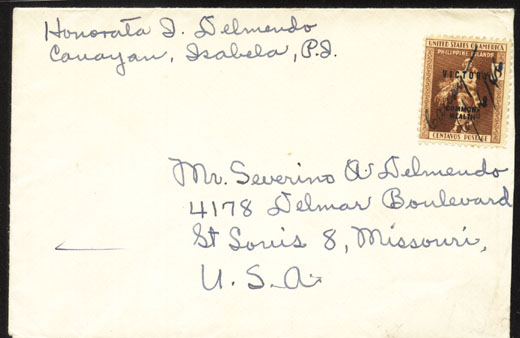 Honorata I. Delmendo
Cauayan, Isabela, P.I.
UNITED STATES OF AMERICA
PHILIPPINE ISLANDS
VICTORY
COMMON-
WEALTH
CENTAVOS POSTAGE
Mr. Severino A. Delmendo
4178 Delmar Boulevard
St Louis 8, Missouri,
U.S.A.